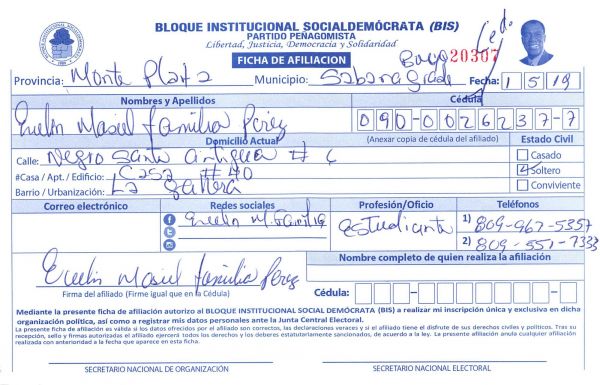 BLOQUE INSTITUCIONAL SOCIALDEMÓCRATA (BIS)
PARTIDO PEÑAGOMISTA
Libertad, Justicia, Democracia y Solidaridad
FICHA DE AFILIACION
20307
Provincia: Monte Plata Municipio: Sabana grade Fecha: 1 5 19
Nombres y Apellidos Cédula
Evelin Masiel familia Perez 090-0026237-7
Domicilio Actual (Anexar copia de cédula del afiliado) Estado Civil
Calle: Negro Santa antigua # 6 Casado
#Casa / Apt. / Edificio: Casa # 40 Soltero
Barrio / Urbanización: La gallera Conviviente
Correo electrónico Redes sociales Profesión/Oficio Teléfonos
Evelin M. familia estudiante 1) 809-967-5357
2) 809-551-7333
Nombre completo de quien realiza la afiliación
Evelin Masiel familia Perez
Firma del afiliado (Firme igual que en la Cédula) Cédula:
Mediante la presente ficha de afiliación autorizo al BLOQUE INSTITUCIONAL SOCIAL DEMÓCRATA (BIS) a realizar mi inscripción única y exclusiva en dicha
organización política, así como a registrar mis datos personales ante la Junta Central Electoral.
La presente ficha de afiliación es válida si los datos ofrecidos por el afiliado son correctos, las declaraciones veraces y si el afiliado tiene el disfrute de sus derechos civiles y políticos. Tras su
recepción, sello y firmas autorizadas el afiliado ejercerá todos los derechos y los deberes estatutariamente sancionados, de acuerdo a la ley. La presente afiliación anula cualquier afiliación
realizada con anterioridad a la fecha que aparece en esta ficha.
SECRETARIO NACIONAL DE ORGANIZACIÓN SECRETARIO NACIONAL ELECTORAL